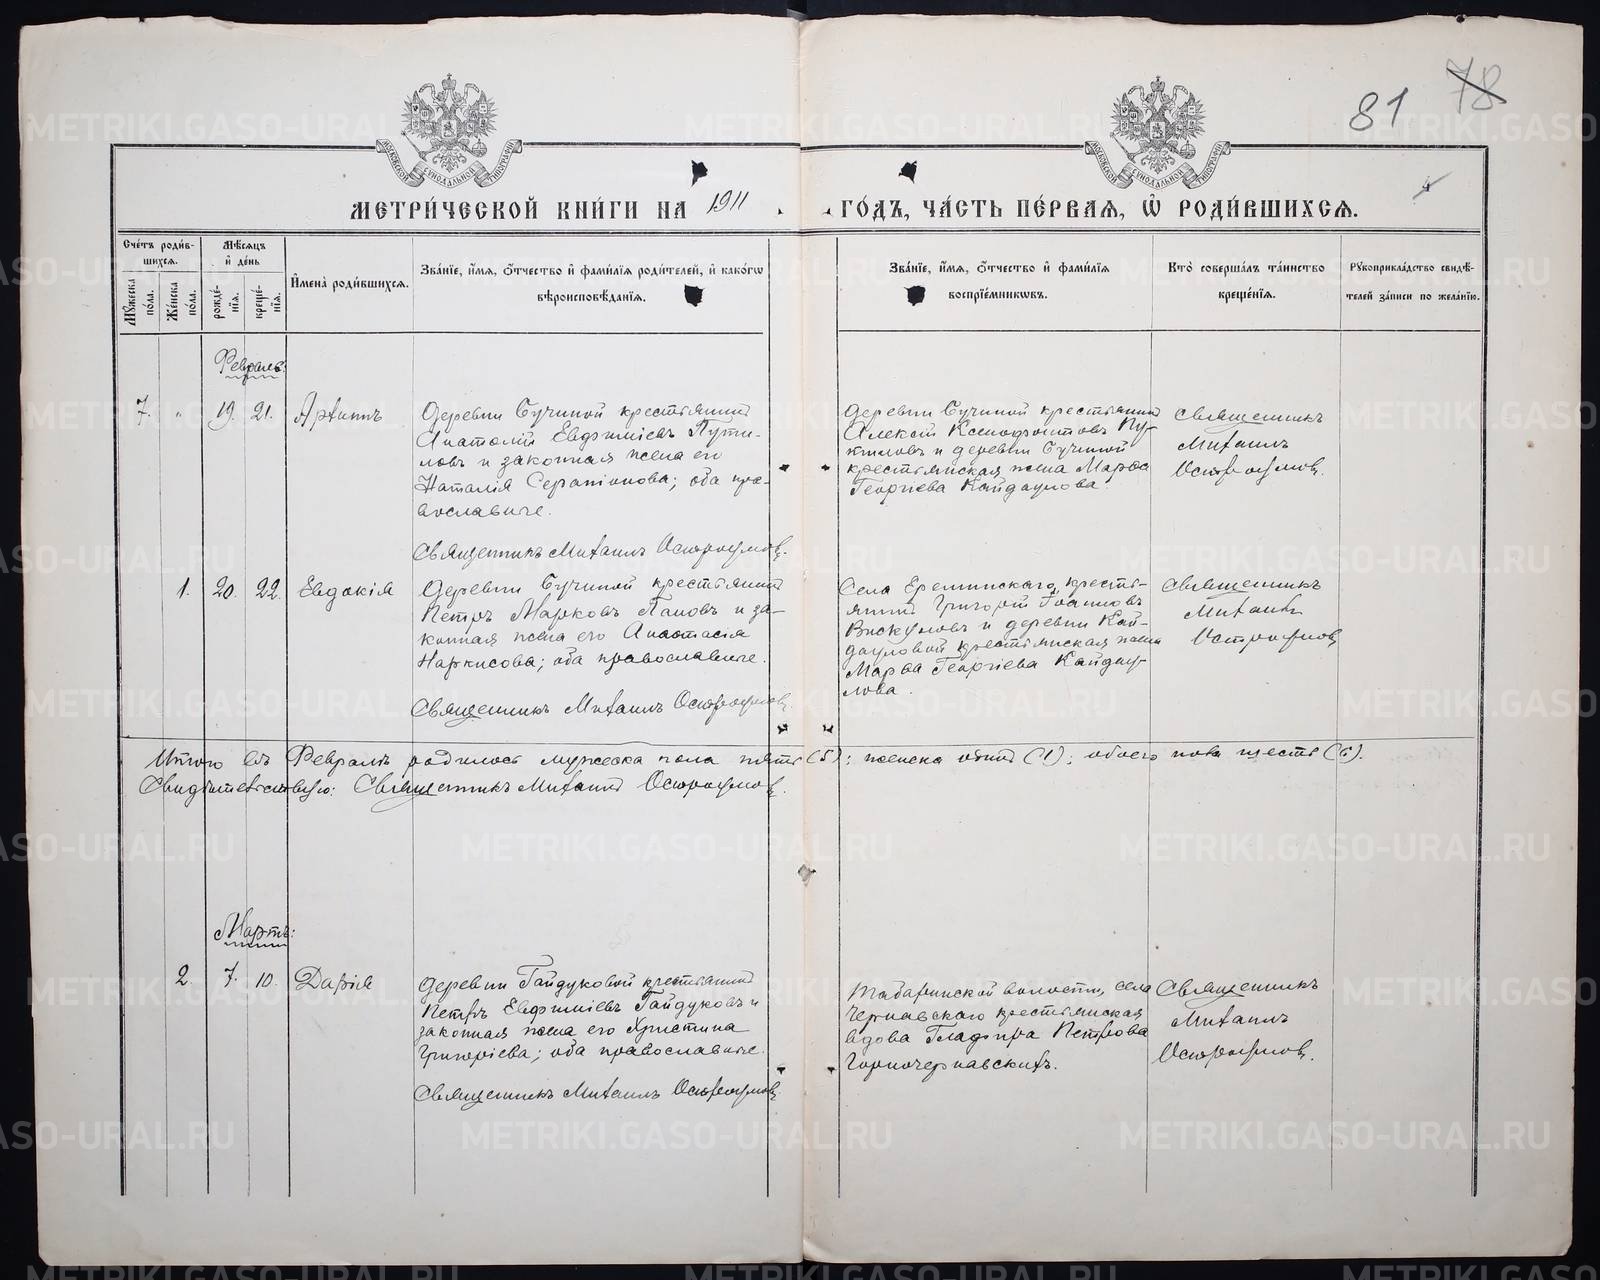 81 78
МЕТРИЧЕСКОЙ КНИГИ НА 1911 ГОДЪ, ЧАСТЬ ПЕРВАЯ, Ѡ РОДИВШИХСЯ.
Счетъ родившихся.
Мужеска пола.
Женска пола.
Мѣсяцъ и день
рожденія.
крещенія.
Имена родившихся.
Званіе, имя, отчество и фамилія родителей, и какогѡ
вѣроисповѣданія.
Званіе, имя, отчество и фамилія
воспріемниковъ.
Кто совершалъ таинство
крещенія.
Рукоприкладство свидѣ-
телей записи по желанію.
Февраль:
7. " 19. 21. Архипъ
Деревни Бучиной крестьянинъ
Анатолій Евфиміевъ Пути-
ловъ и законная жена его
Наталія Серапіонова; оба пра-
вославные.
Священникъ Михаилъ Остроумовъ.
Деревни Бучиной крестьянинъ
Алексій Ксенофонтовъ
и деревни Бучиной
крестьянская жена Марфа
Георгіева Кайдаулова.
Священникъ
Михаилъ
Остроумовъ.
1. 20. 22. Евдокія
Деревни Бучиной крестьянинъ
Петръ Марковъ Пановъ и за-
конная жена его Анастасія
Наркисова; оба православные.
Священникъ Михаилъ Остроумовъ.
Села Ереминскаго, кресть-
янинъ Григорій Іоанновъ
Вискуловъ и деревни Кай-
дауловой крестьянская жена
Марфа Георгіева Кайдау-
лова.
Священникъ
Михаилъ
Остроумовъ
Итого въ Февралѣ родилось мужеска пола пять (5); женска одинъ (1); обоего пола шесть (6).
Свидѣтельствую: Священникъ Михаилъ Остроумовъ.
Мартъ:
2. 7. 10. Дарія
Деревни Гайдуковой крестьянинъ
Петръ Евфиміевъ Гайдуковъ и
законная жена его Христина
Григоріева; оба православные.
Священникъ Михаилъ Остроумовъ.
Табаринской волости, села
Чернавскаго крестьянская
вдова Глафира Петрова
Горночернавскихъ.
Священникъ
Михаилъ
Остроумовъ.
METRIKI.GASO-URAL.RU